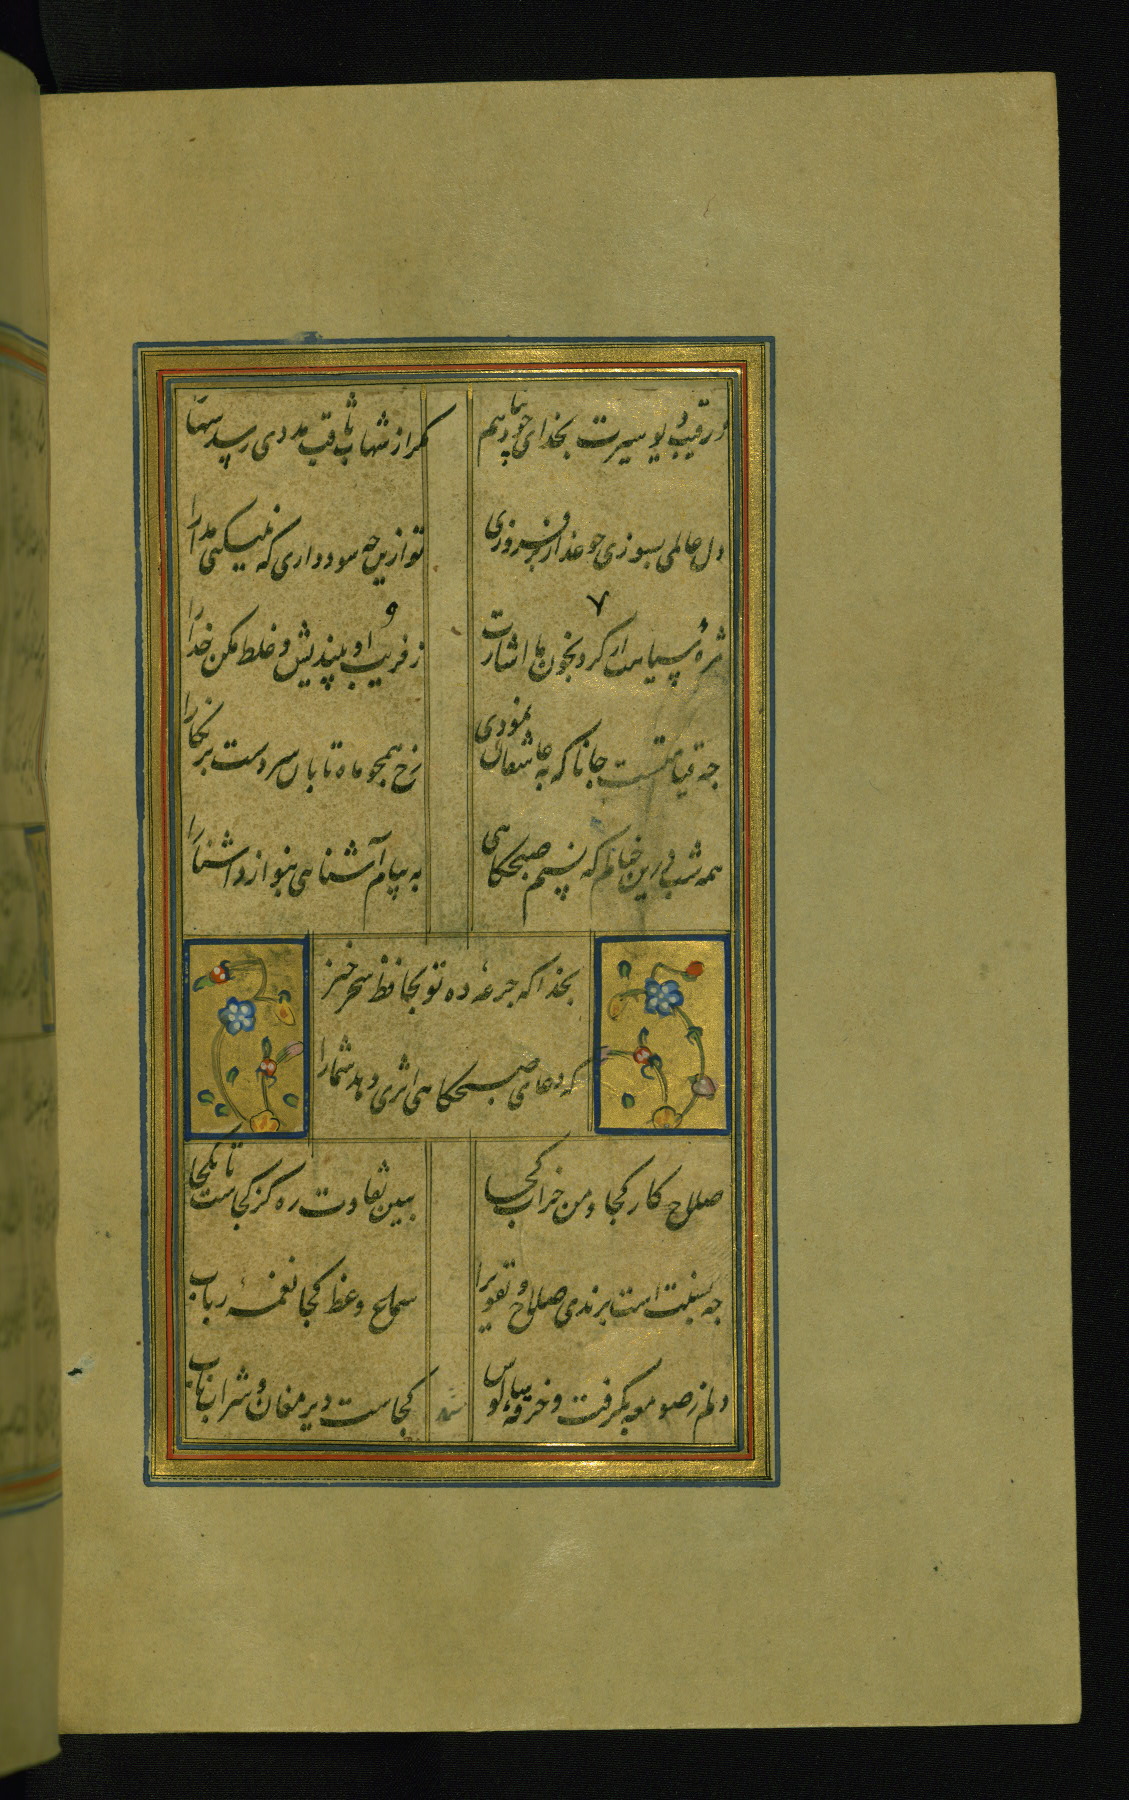 ز رقیب دیو سیرت بخدای خود پناهم
مکر از شهاب ثاقب مددی رسد سها
دل عالمی بسوزی جو عذار بر فروزی
تو ازین جه سود داری که نمیکنی مدارا
مژه سیاست ار کرد بخون ما اشارت
ز فریب او بیندیش و غلط مکن خدارا
جه قیامتست جانا که به عاشقان نمودی
رخ همجو ماه تابان سر دست بر نکارا
همه شب درین خیالم که نسیم صبحکاهی
به پیام آشناهی بنوازد اشنارا
بخدا که جرعهٔ ده تو بحافظ سحر خیز
که دعای صبحکاهی اثری دهد شمارا
صلاح کار کجا و من خراب کجا
ببین تفاوت ره کز کجاست تا بکجا
جه نسبت است برندی صلاح و تقویرا
سماع وعظ کجا نغمهٔ رباب
دلم ز صومعه بکرفت و خرقه سالوس
کجاست دیر مغان و شراب ناب